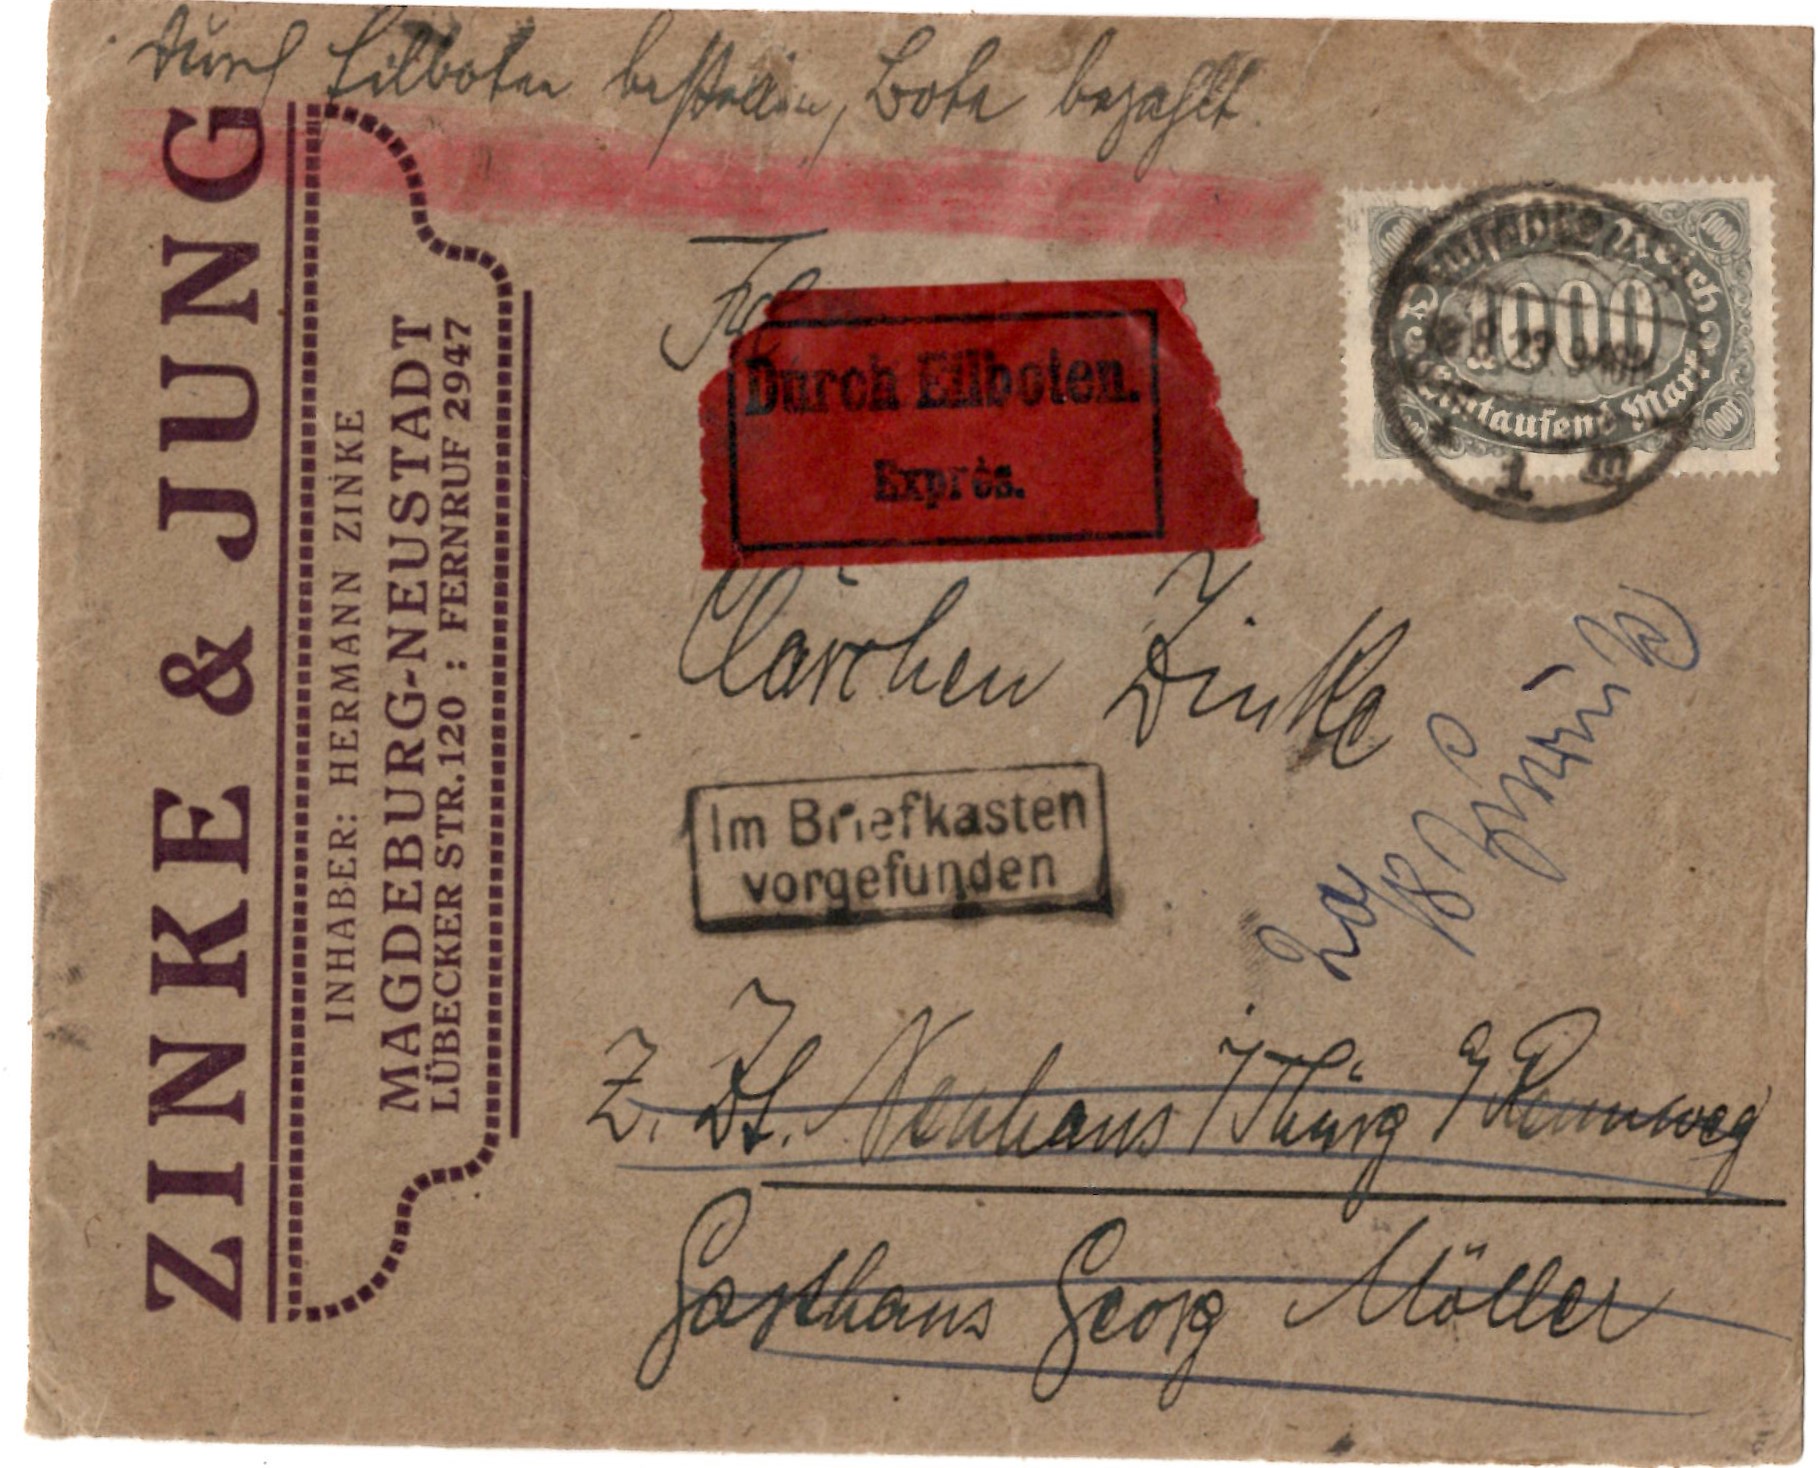 Durch Eilboten bestellen, Bote bezahlt.
ZINKE & JUNG
INHABER: HERMANN ZINKE
MAGDEBURG-NEUSTADT
LÜBECKER STR. 120 : FERNRUF 2947
Deutsches Reich
1000
1000
1000
Eintausend Mark
23 9-10
1 m
Durch Eilboten.
Exprès.
Clärchen Zinke
Im Briefkasten
vorgefunden
18 zurück
Z. Zt. Neuhaus i/Thürg Rennweg
Gasthaus Georg Möller